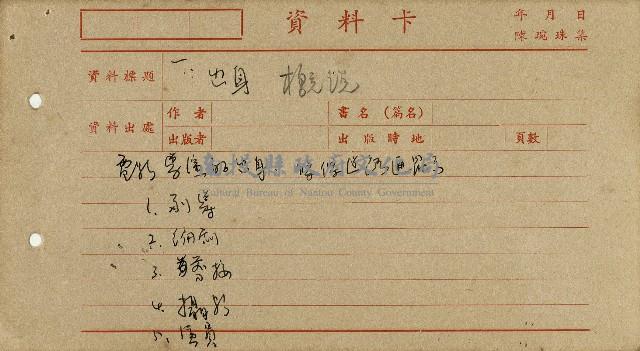 資料卡
年 月 日
陳琬珠集
資料標題
一: 出身 概説
資料出處
作者
書名（篇名）
出版者
出版時地
頁數
電影導演的出身
南投縣政府文化局
Cultural Bureau of Nantou County Government
1. 副導
2. 編劇
3.
4. 攝影
5. 演員